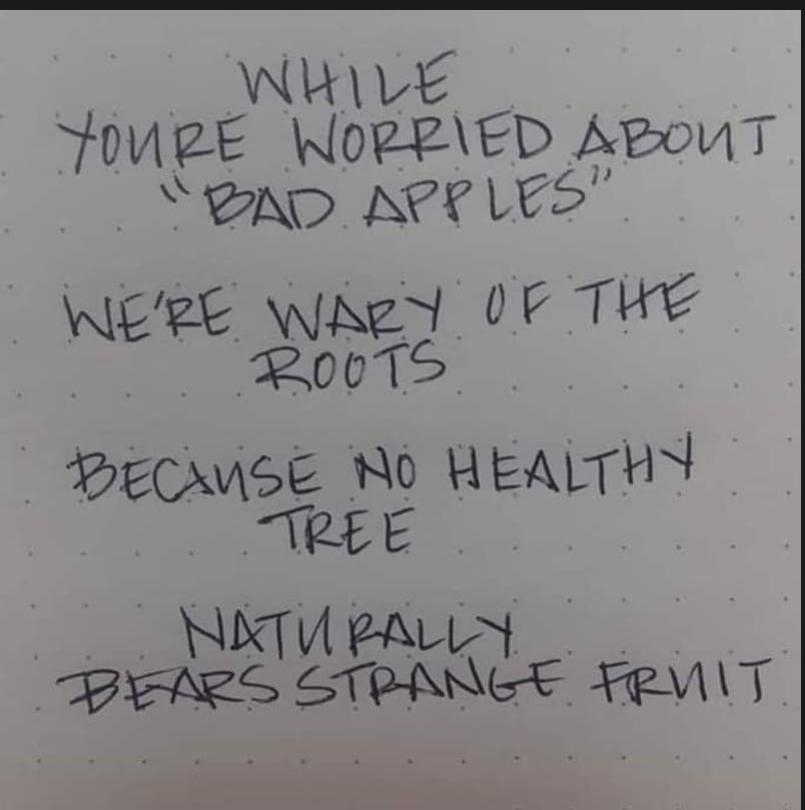 WHILE
YOURE WORRIED ABOUT
"BAD APPLES"
WE'RE WARY OF THE
ROOTS
BECAUSE NO HEALTHY
TREE
NATURALLY
BEARS STRANGE FRUIT